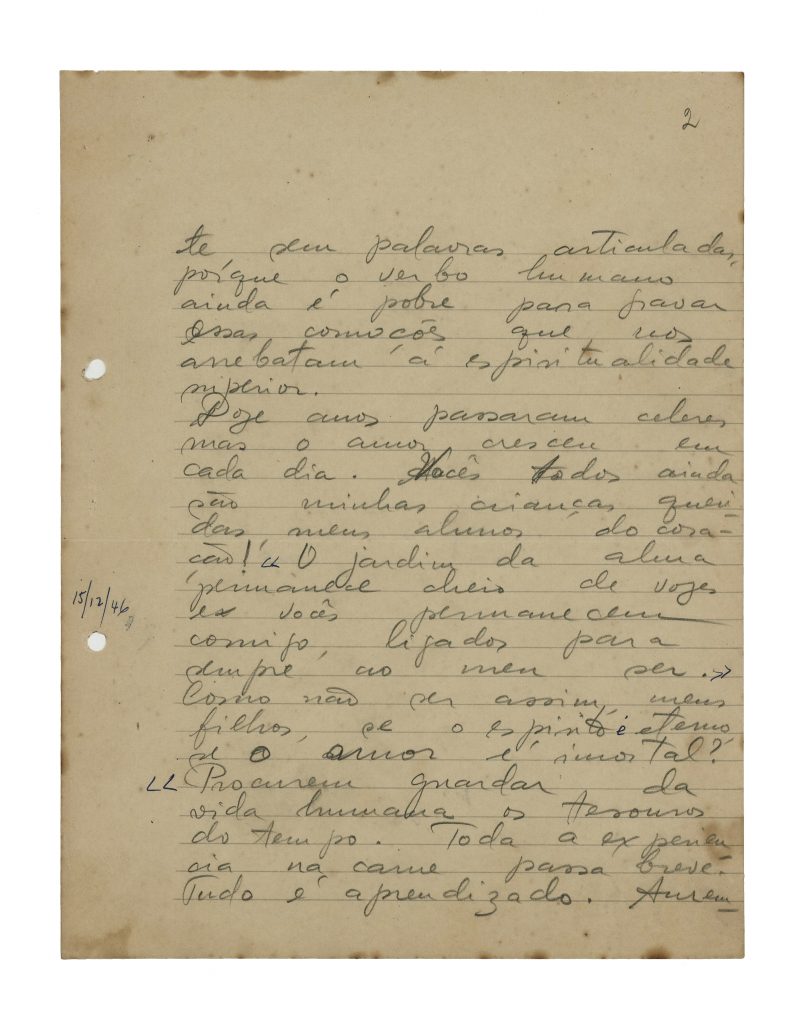 2
te sem palavras articuladas,
porque o verbo humano
ainda é pobre para gravar
essas comoções que nos
arrebatam á espiritualidade
superior.
Doze anos passaram celeres
mas o amor cresceu em
cada dia. Vocês todos ainda
são minhas crianças queri-
das, meus alunos do cora-
ção! << O jardim da alma
permanece cheio de vozes
e vocês permanecem
15/12/46
comigo, ligados para
sempre ao meu ser. >>
Como não ser assim, meus
filhos, se o espirito é eterno
se o amor é imortal?
<< Procurem guardar da
vida humana os tesouros
do tempo. Toda a experien
cia na carne passa breve.
Tudo é aprendizado. Aurem-